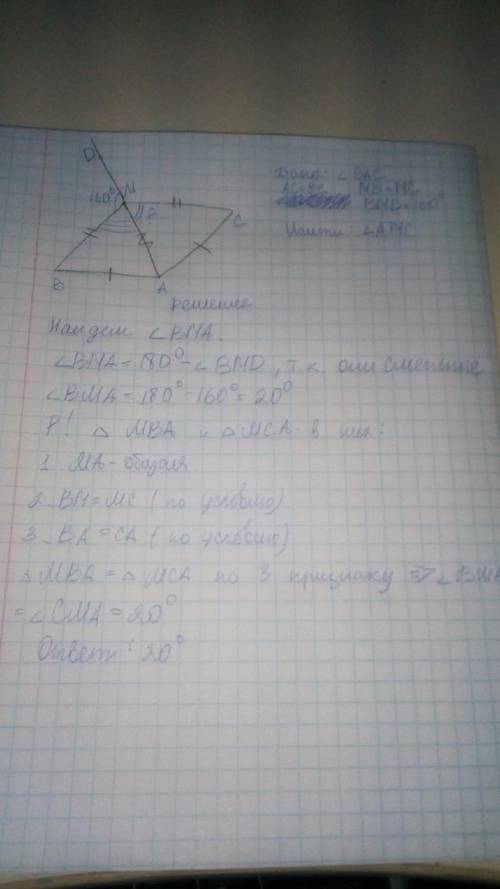 D
M
160°
?
C
B
A
Дано: ∠BAC
AC=BA MB=MC
BMD=160°
Найти ∠AMC
Решение
Найдем ∠BMA.
∠BMA = 180° - ∠BMD, т.к. они смежные
∠BMA = 180° - 160° = 20°
Р! △ MBA и △MCA в них:
1. MA - общая
2. BM = MC (по условию)
3. BA = CA (по условию)
△MBA = △ MCA по 3 признаку => ∠BMA
= ∠CMA = 20°
Ответ: 20°